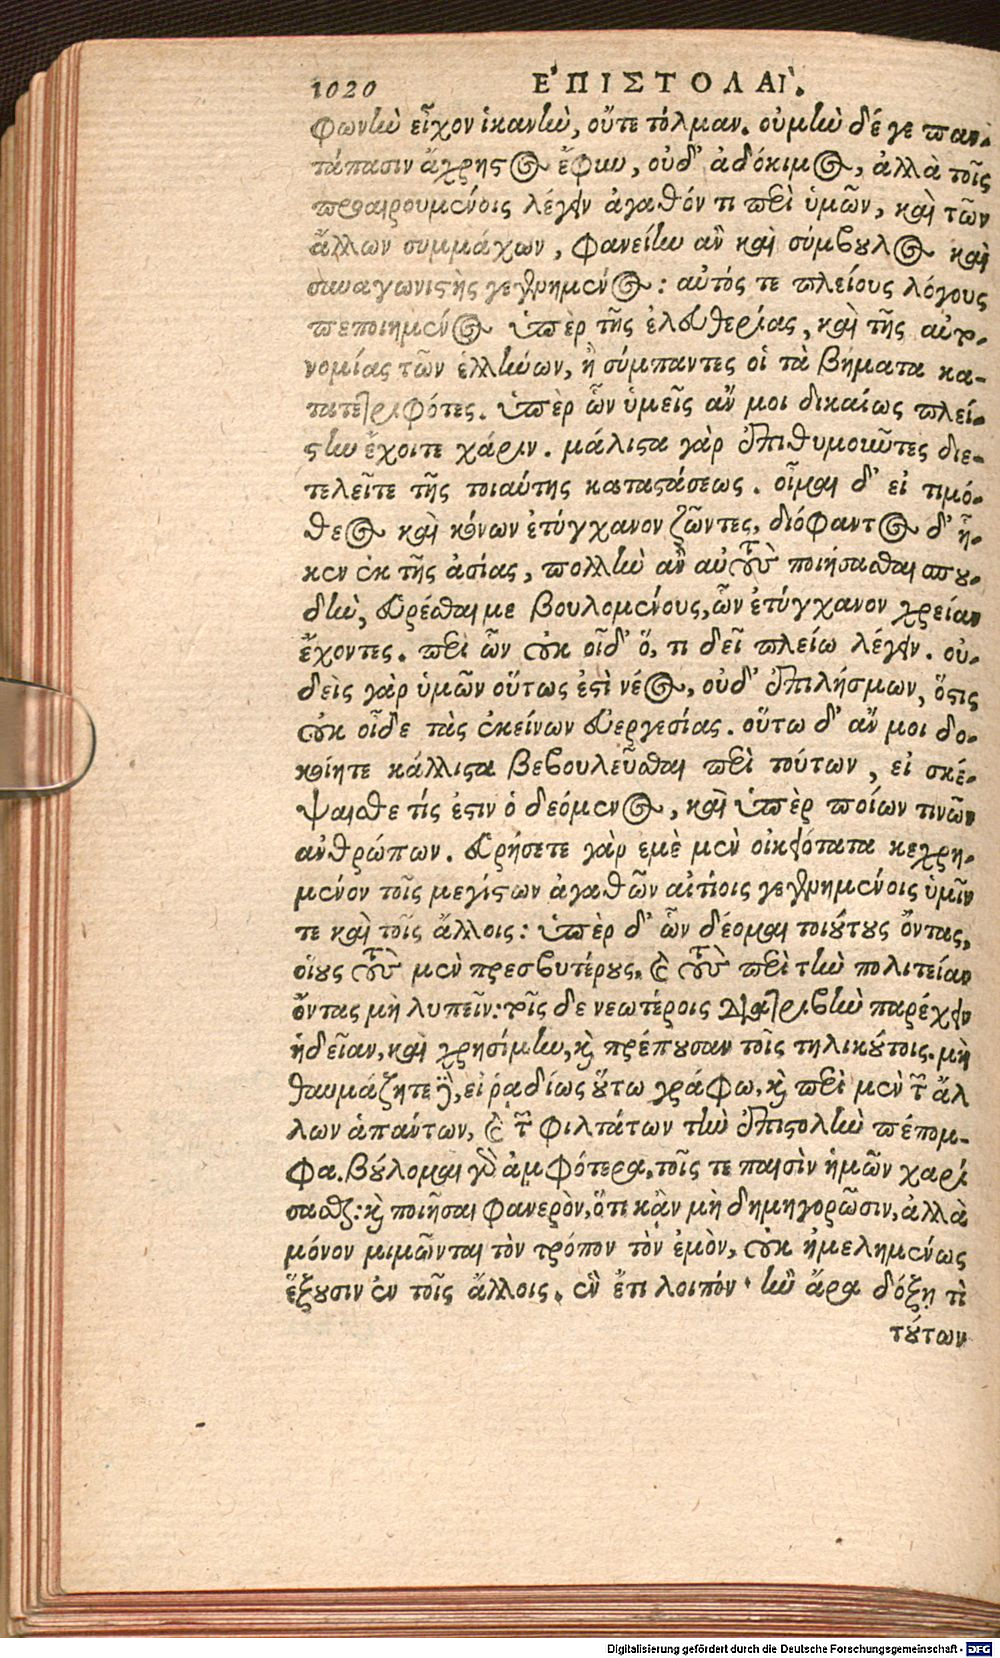 1020 ἘΠΙΣΤΟΛΑῚ.
φωνὴν εἶχον ἱκανὴν, οὔτε τόλμαν. οὐμὴν δέ γε παν-
τάπασιν ἄχρηστος ἔφυν, οὐδ' ἀδόκιμος, ἀλλὰ τοῖς
προαιρουμένοις λέγειν ἀγαθόν τι περὶ ὑμῶν, καὶ τῶν
ἄλλων συμμάχων, φανείην ἂν καὶ σύμβουλος καὶ
συναγωνιστὴς γεγενημένος: αὐτός τε πλείους λόγους
πεποιημένος ὑπὲρ τῆς ἐλευθερίας, καὶ τῆς αὐτο-
νομίας τῶν ἑλλήνων, ἢ σύμπαντες οἱ τὰ βήματα κα-
τατετριφότες. ὑπὲρ ὧν ὑμεῖς ἄν μοι δικαίως πλεί-
στην ἔχοιτε χάριν. μάλιστα γὰρ ἐπιθυμοῦντες διε-
τελεῖτε τῆς τοιαύτης καταστάσεως. οἶμαι δ' εἰ τιμό-
θεος καὶ κόνων ἐτύγχανον ζῶντες, διόφαντος δ' ἧ-
κεν ἐκ τῆς ἀσίας, πολλὴν ἂν αὐτοὺς ποιήσασθαι σπου-
δὴν, εὑρέσθαι με βουλομένους, ὧν ἐτύγχανον χρείαν
ἔχοντες. περὶ ὧν οὐκ οἶδ' ὅ, τι δεῖ πλείω λέγειν. οὐ-
δεὶς γὰρ ὑμῶν οὕτως ἐστὶ νέος, οὐδ' ἐπιλήσμων, ὅστις
οὐκ οἶδε τὰς ἐκείνων εὐεργεσίας. οὕτω δ' ἄν μοι δο-
κοίητε κάλλιστα βεβουλεῦσθαι περὶ τούτων, εἰ σκέ-
ψαισθε τίς ἐστιν ὁ δεόμενος, καὶ ὑπὲρ ποίων τινῶν
ἀνθρώπων. εὑρήσετε γὰρ εμὲ μὲν οἰκειότατα κεχρη-
μένον τοῖς μεγίστων ἀγαθῶν αἰτίοις γεγενημένοις ὑμῖν
τε καὶ τοῖς ἄλλοις: ὑπὲρ δ' ὧν δέομαι τοιούτους ὄντας,
οἵους τοὺς μὲν πρεσβυτέρους, καὶ τοὺς περὶ τὴν πολιτείαν
ὄντας μὴ λυπεῖν: τοῖς δε νεωτέροις διατριβὴν παρέχειν
ἡδεῖαν, καὶ χρησίμην, καὶ πρέπουσαν τοῖς τηλικούτοις. μὴ
θαυμάζητε δὲ, εἰ ῥαδίως οὕτω γράφω, καὶ περὶ μὲν τῶν ἄλ
λων ἁπάντων, καὶ τῶν φιλτάτων τὴν ἐπιστολὴν πέπομ-
φα. βούλομαι γὰρ ἀμφότερα, τοῖς τε παισὶν ἡμῶν χαρί
σασθαι: καὶ ποιῆσαι φανερὸν, ὅτι κἂν μὴ δημηγορῶσιν, ἀλλὰ
μόνον μιμῶνται τὸν τρόπον τὸν ἐμὸν, οὐκ ἠμελημένως
ἕξουσιν ἐν τοῖς ἄλλοις. ἓν ἔτι λοιπόν· ἢν ἄρα δόξῃ τὶ
τούτων
Digitalisierung gefördert durch die Deutsche Forschungsgemeinschaft - DFG